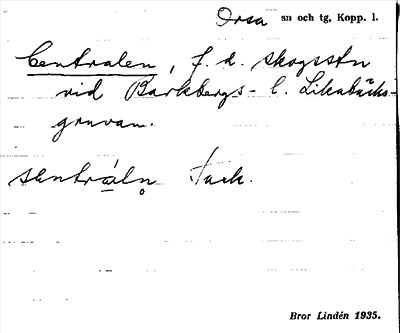 Orsa sn och tg, Kopp. l.
Centralen, f. d. skogsstn
vid Barkbergs- l. Likabäcks-
gruvan.
sentráln̥
Bror Lindén 1935.